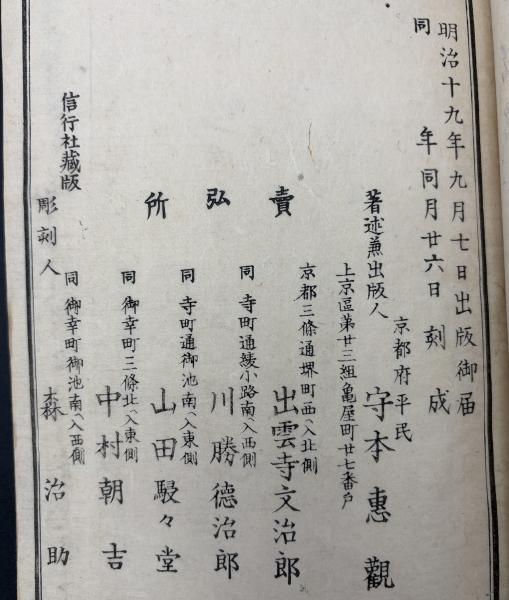 明治十九年九月七日出版御届
同年同月廿六日刻成
京都府平民
著述兼出版人 守本惠觀
上京區第廿三組亀屋町廿七番戸
賣弘所
京都三條通堺町西ヘ入北側 出雲寺文治郎
同 寺町通綾小路南ヘ入西側 川勝德治郎
同 寺町通御池南ヘ入東側 山田駸々堂
同 御幸町三條北ヘ入東側 中村朝吉
同 御幸町御池南ヘ入西側
彫刻人 森治助
信行社藏版